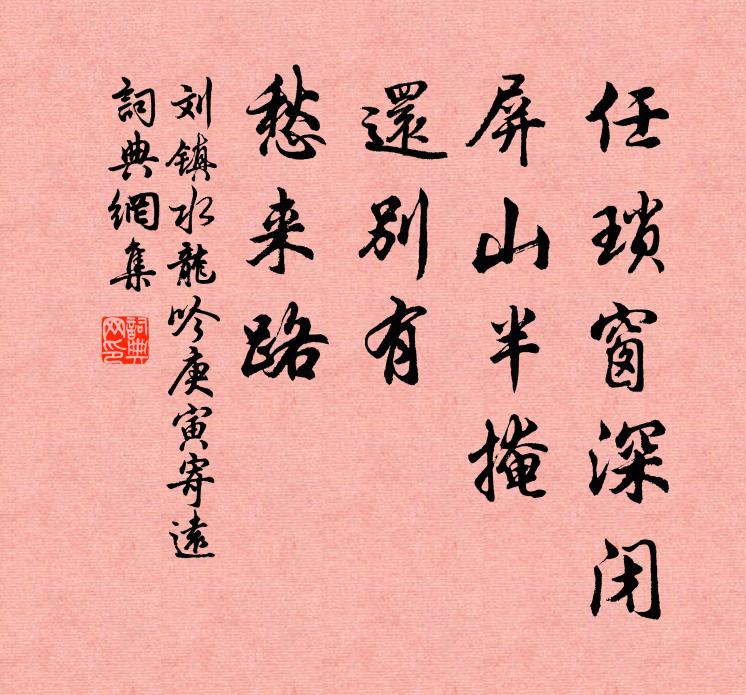 任瑣窗深闭
屏山半掩
還别有
愁来路
刘镇水龍吟庚寅寄遠
詞典網集
詞典网印